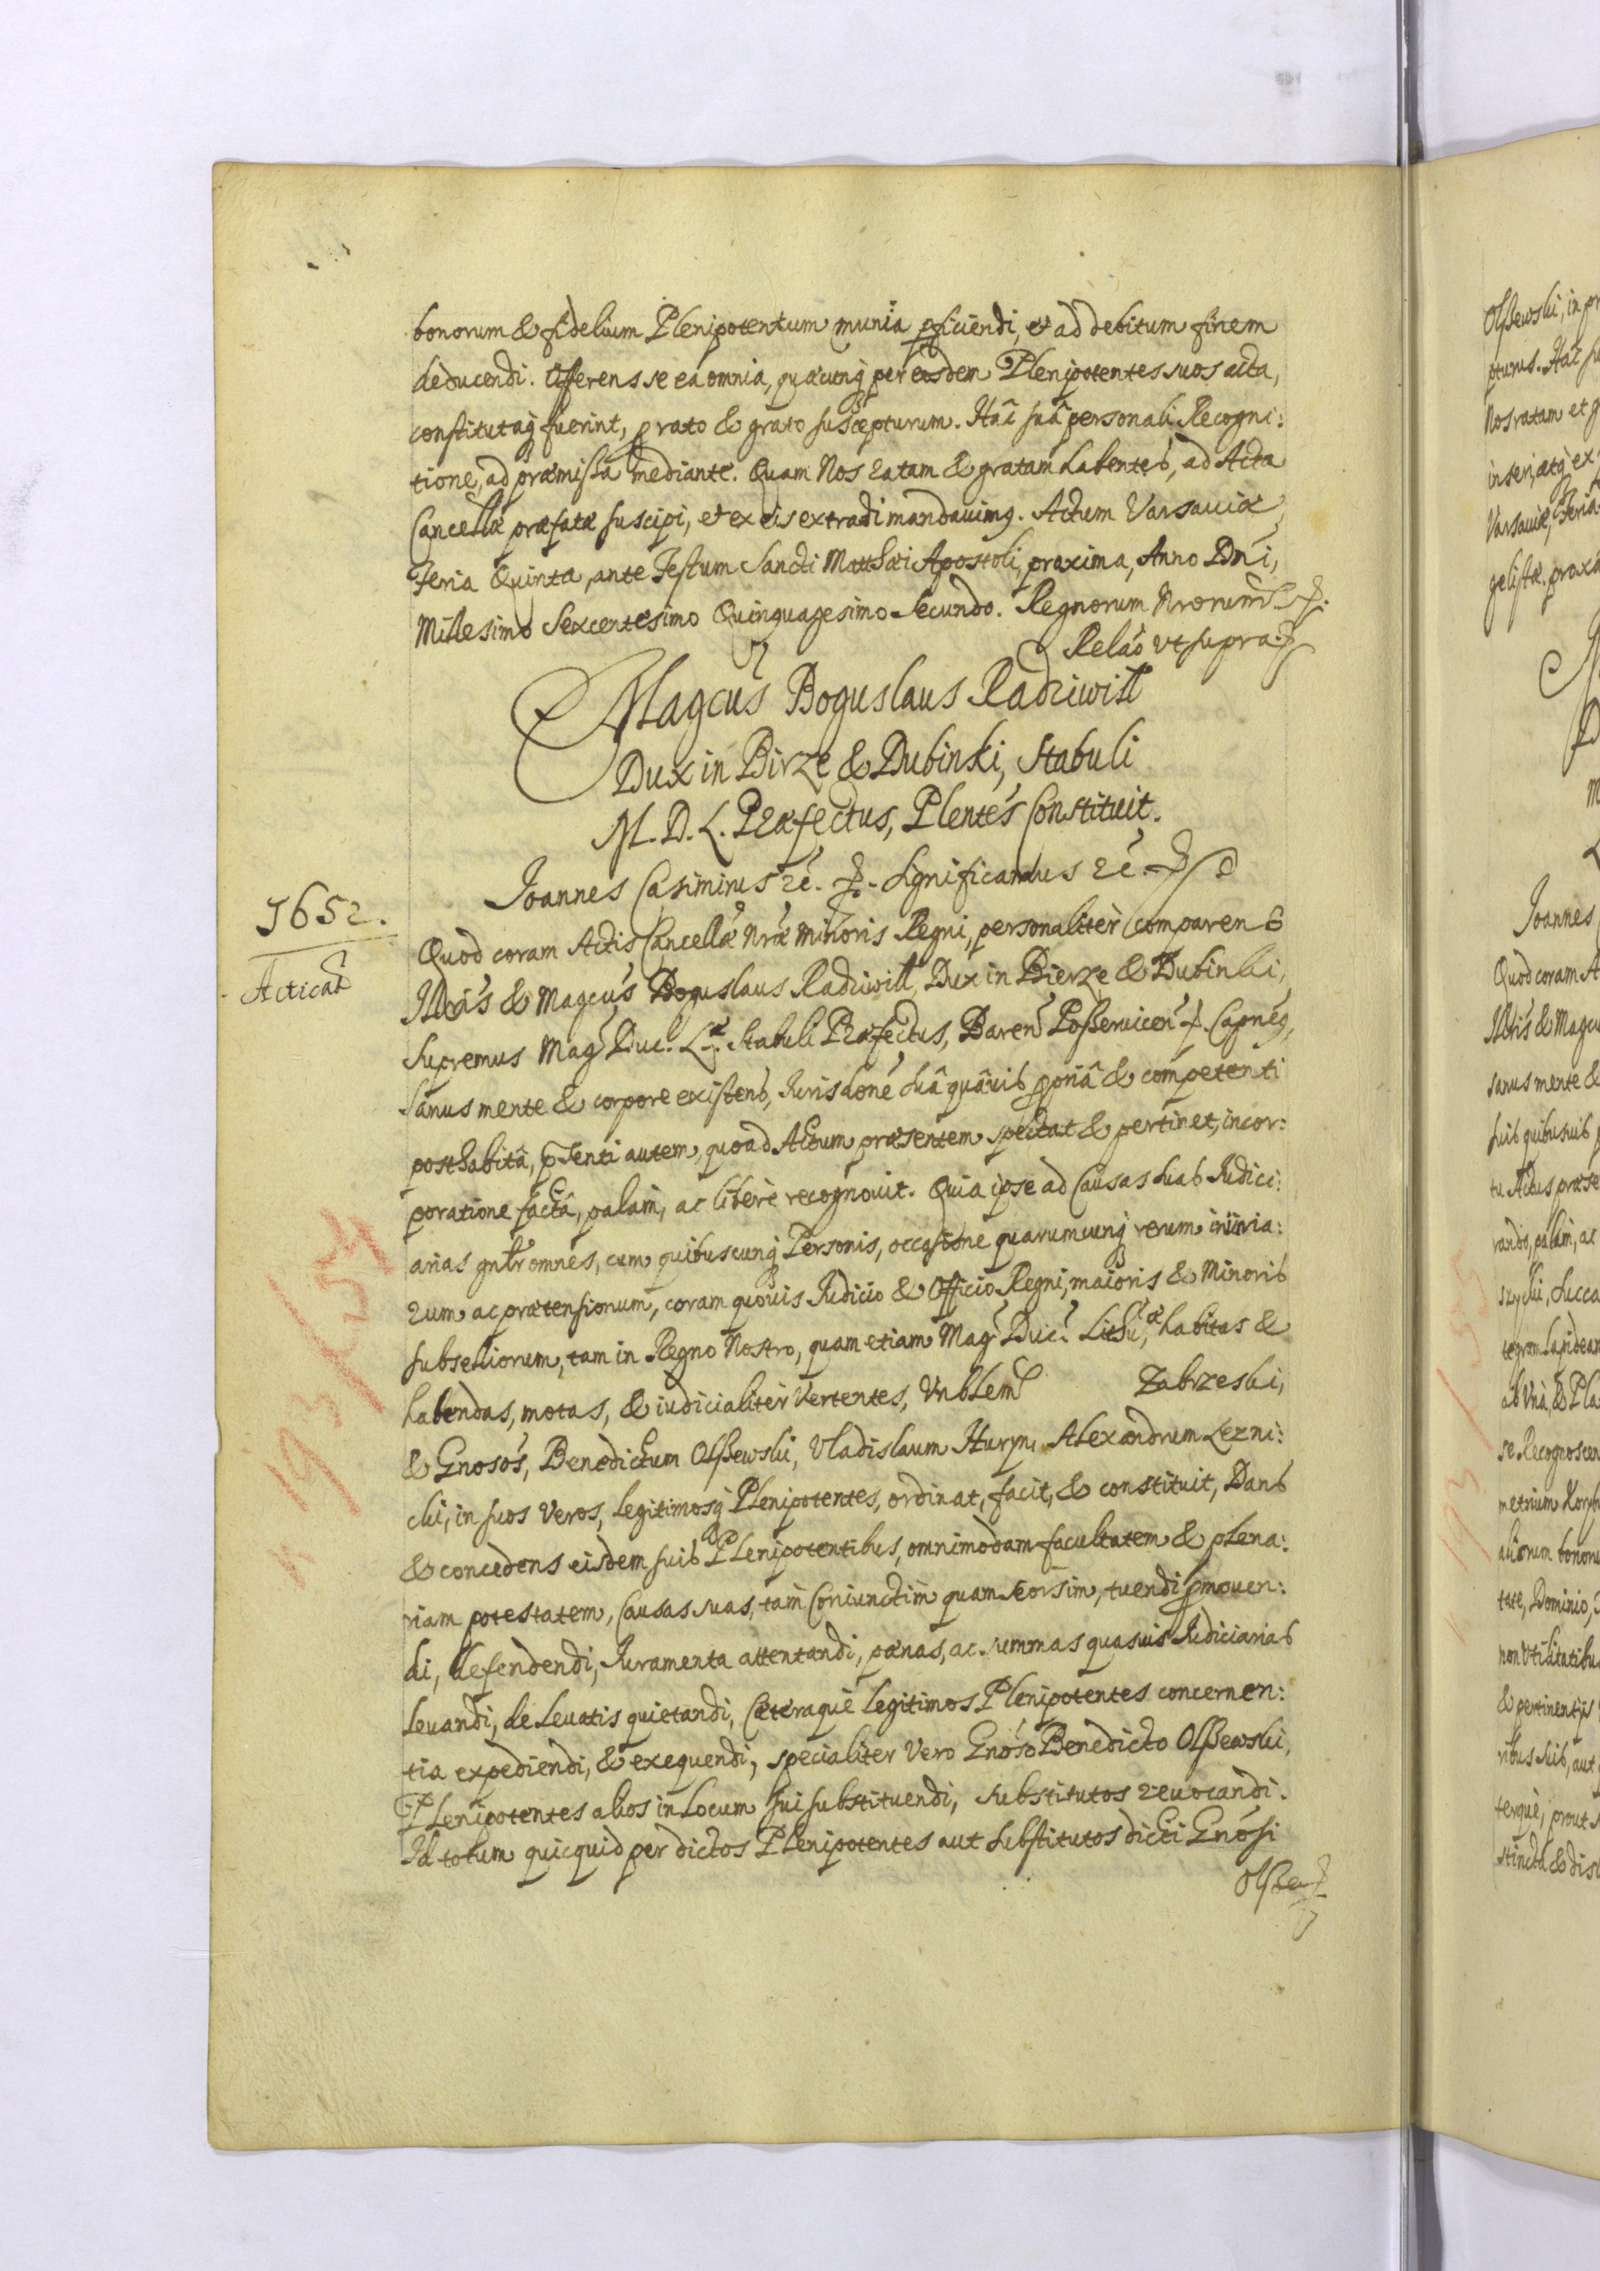 bonorum & fidelium Plenipotentum munia pficiendi, et ad debitum finem
deducendi. Offerens se ea omnia, quæcunq per eosdem Plenipotentes suos acta,
constitutaq fuerint, p rato & grato suscepturum. Hac suâ personali Recogni:
tione, ad præmissa mediante. Quam Nos ratam & gratam habentes, ad Acta
Cancellæ præfatæ suscipi, et ex eis extradi mandauimg. Actum Varsauiæ
Feria Quinta, ante Festum Sancti Matthæi Apostoli, proxima, Anno Dni,
Millesimo Sexcentesimo Quinquagesimo Secundo. Regnorum Nrorum
Relao vt supra.
Magcus Boguslaus Radziwill
Dux in Birze & Dubinki, Stabuli
M. D. L. Præfectus, Plentes Constituit.
Joannes Casimirus &c. Significamus &c.
1652.
Acticat
Quod coram Actis Cancellæ Nræ Minoris Regni, personalitèr comparens
Illris & Magcus Boguslaus Radziwill, Dux in Bierze & Dubinki,
Supremus Mag Duc. L. Stabuli Præfectus, Baren Posseruicen Capneg,
Sanus mente & corpore existens, Jurisdone suâ quâuis ppriâ & competenti
posthabitâ, pnti autem, quoad Actum præsentem spectat & pertinet, incor:
poratione factâ, palàm, ac liberè recognouit. Quia ipse ad Causas suas Judici:
arias gnlr omnes, cum quibuscunq Personis, occasione quarumcunq rerum iniuria:
rum ac prætensionum, coram quouis Judicio & Officio Regni, maioris & Minoris
subselliorum, tam in Regno Nostro, quam etiam Mag Duc. Lithu, habitas &
habendas, motas, & iudicialitèr Vertentes, Vrblem Zabrzeski,
& Gnosos, Benedictum Olssewski, Vladislaum Huryn, Alexandrum Lezni:
cki, in suos Veros, legitimosq Plenipotentes, ordinat, facit, & constituit, Dans
& concedens eisdem suis Plenipotentibus, omnimodam facultatem & plena:
riam potestatem, Causas suas, tàm Coniunctim quam seorsim, tuendi pmouen:
di, defendendi, Juramenta attentandi, pænas, ac summas quasuis Judiciarias
leuandi, de leuatis quietandi, Cæteraque legitimos Plenipotentes concernen:
tia expediendi, & exequendi, specialiter Vero Gnoso Benedicto Olssewski,
Plenipotentes alios in Locum sui substituendi, Substitutos reuocandi.
Id totum quicquid per dictos Plenipotentes aut substitutos dicti Gnosi
Olssew